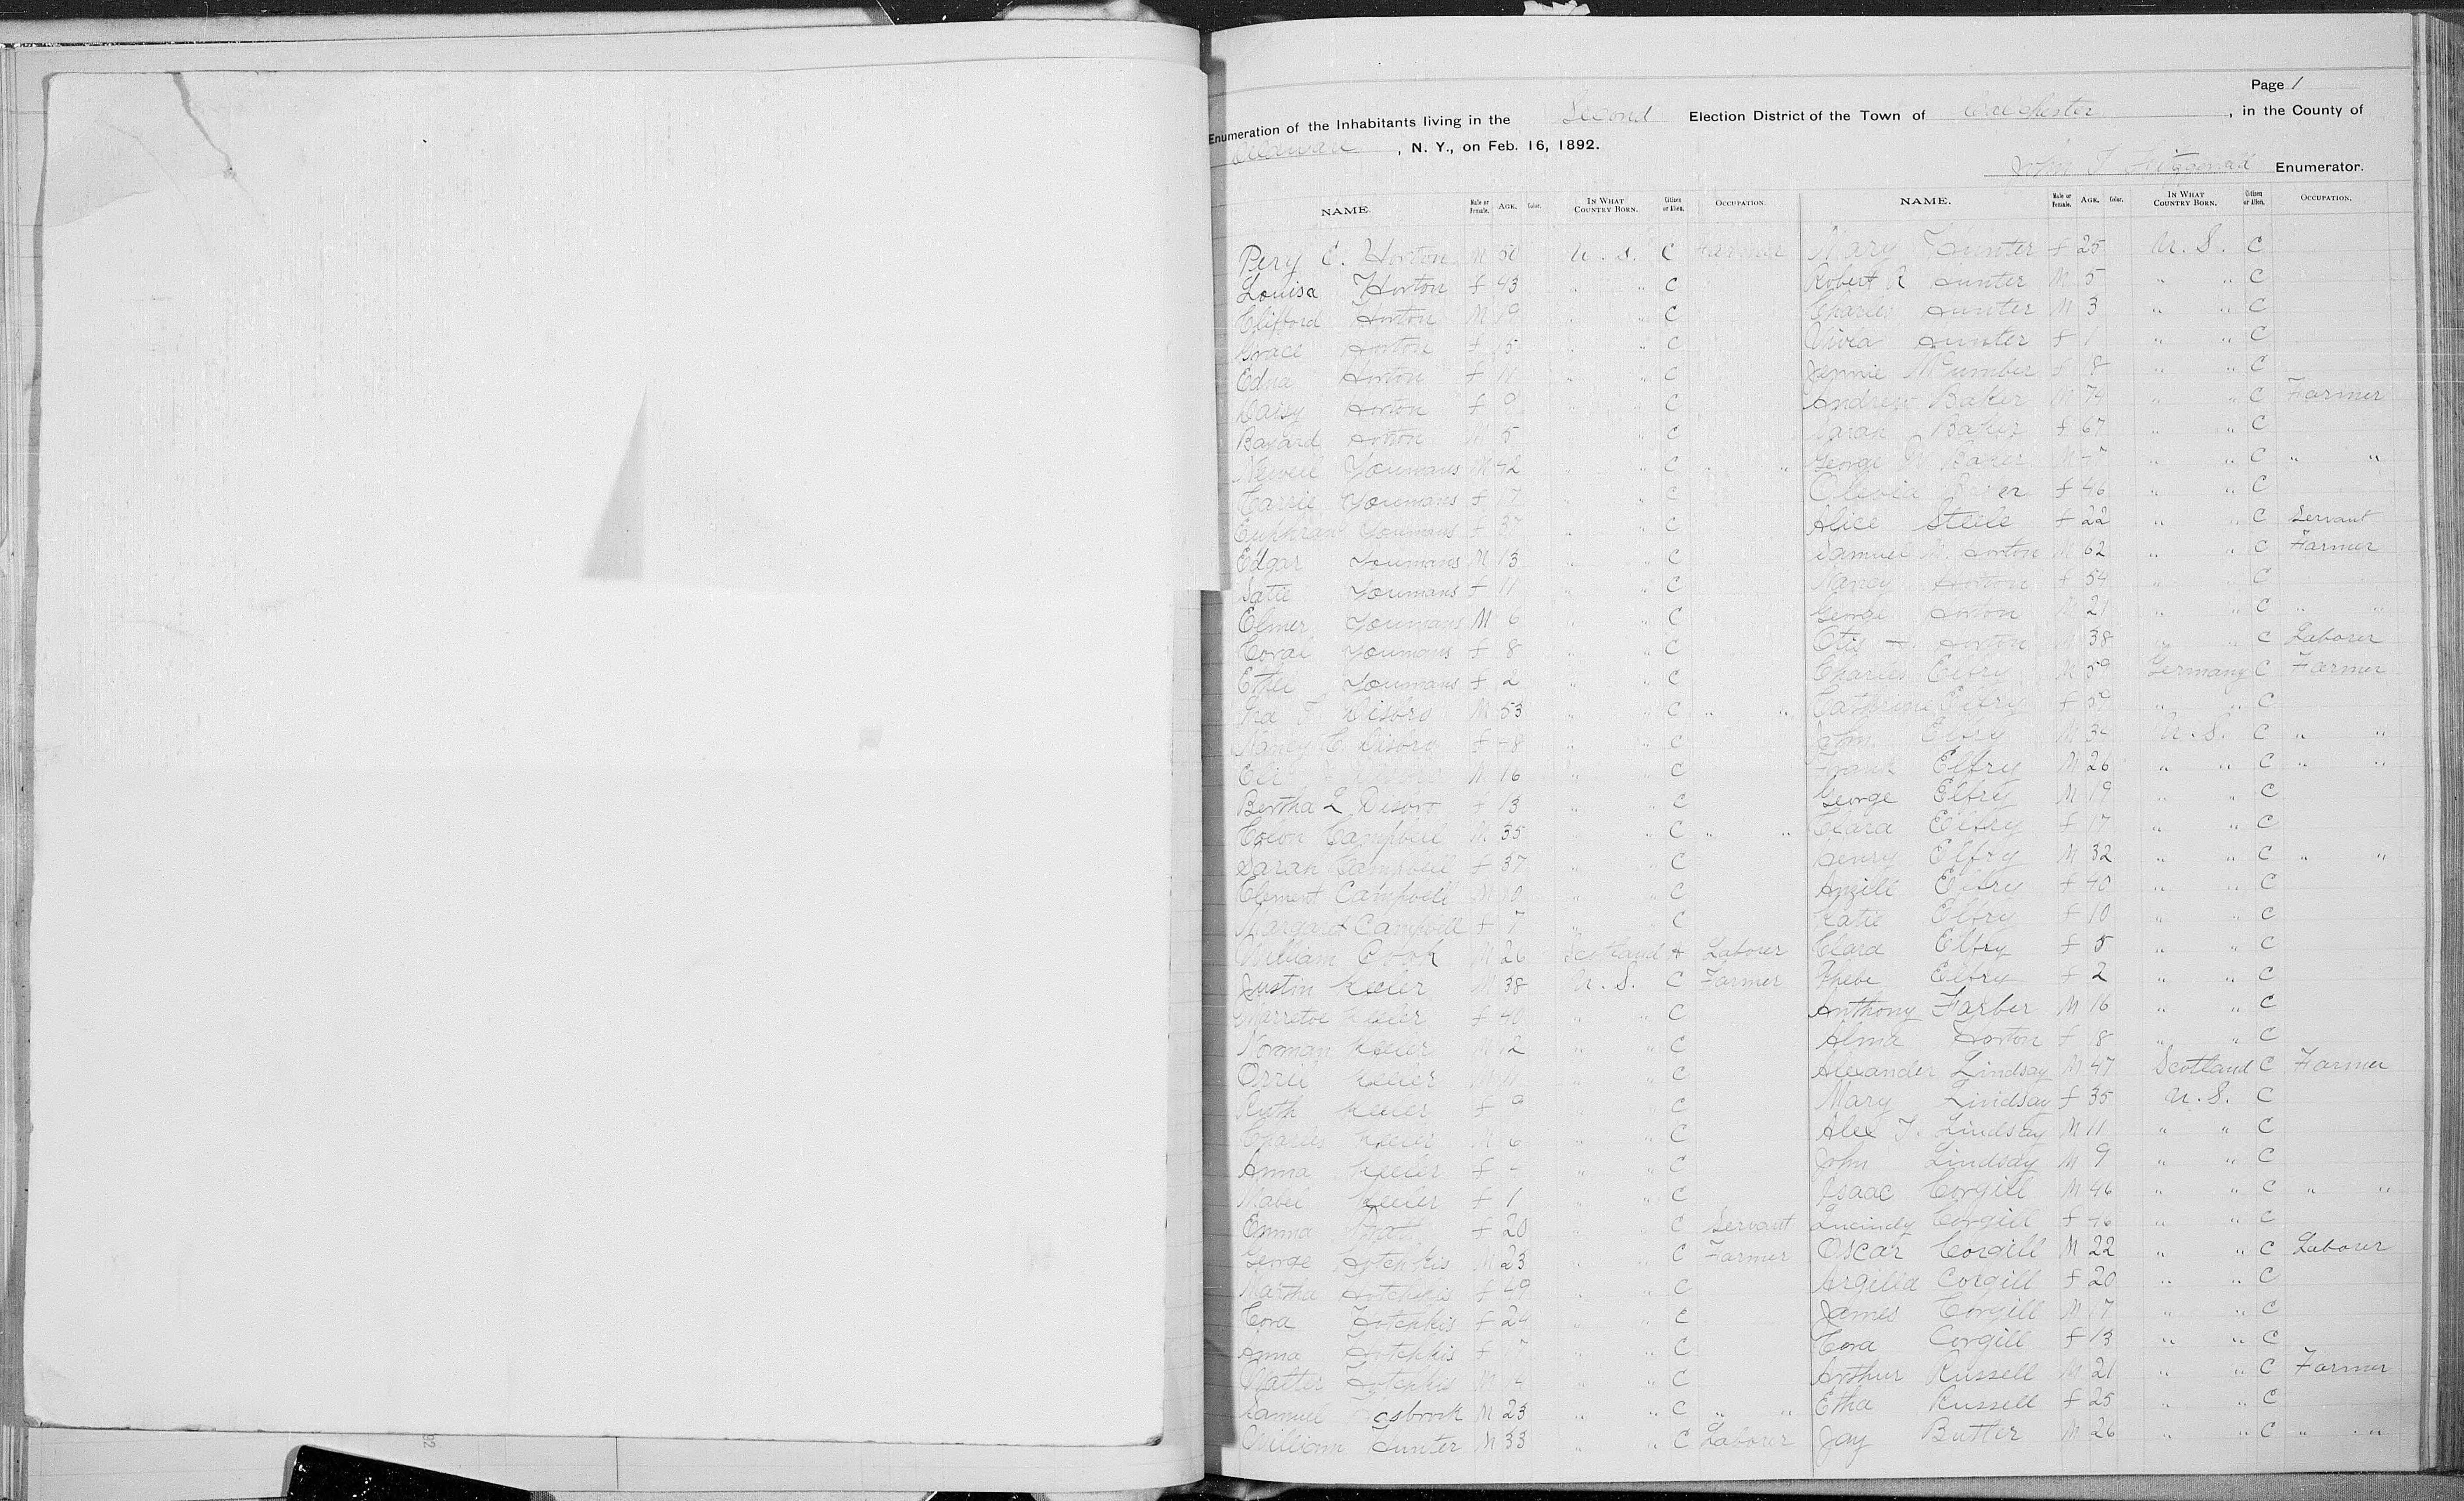 Page 1
Enumeration of the Inhabitants living in the Second Election District of the Town of Colchester, in the County of
Delaware, N. Y., on Feb. 16, 1892.
John T. Fitzgerald Enumerator.
NAME. Male or Female. AGE. Color. IN WHAT COUNTRY BORN. Citizen or Alien. OCCUPATION.
Pery E. Horton M 50 U. S. C Farmer
Louisa Horton f 43 " " C
Clifford Horton M 19 " " C
Grace Horton f 15 " " C
Edna Horton f 11 " " C
Daisy Horton f 9 " " C
Bayard Horton M 5 " C
Newell Youmans M 42 " " C " "
Carrie Youmans f 17 " C
Youmans f 37 " " C
Edgar Youmans M 13 " " C
Satie Youmans f 11 " " C
Elmer Youmans M 6 " " C
Coral Youmans f 8 " " C
Ethel Youmans f 2 " " C
Ira T Disbro M 53 " " C " "
Nancy C. Disbro f 48 " " C
Eli Disbro M 16 " " C
Bertha L Disbro f 13 " " C
Colon Campbell M 35 " C " "
Sarah Campbell f 37 " " C
Clement Campbell M 10 " " C
Margaret Campbell f 7 " " C
William Cook M 26 Scotland A Laborer
Justin Keeler M 38 U. S. C Farmer
Keeler f 40 " " C
Norman Keeler M 12 " " C
Orril Keeler M 11 " " C
Ruth Keeler f 9 " C
Charles Keeler M 6 " " C
Anna Keeler f 4 " " C
Mabel Keeler f 1 " C
Emma f 20 " C Servant
George Hotchkis M 23 " " C Farmer
Martha Hotchkis f 49 " " C
Cora Hotchkis f 24 " " C
Anna Hotchkis f 17 " " C
Walter Hotchkis M 14 " " C
Samuel Hasbrook M 23 " " C " "
William Hunter M 33 " " C Laborer
NAME. Male or Female. AGE. Color. IN WHAT COUNTRY BORN. Citizen or Alien. OCCUPATION.
Mary Hunter f 25 U. S. C
Robert R Hunter M 5 " " C
Charles Hunter M 3 " " C
Vivia Hunter f 1 " " C
Jennie McUmber f 8 " " C
Andrew Baker M 74 " " C Farmer
Sarah Baker f 67 " " C
George W Baker M " " C " "
Olevia Baker f 46 " " C
Alice Steele f 22 " " C Servant
Samuel M. Horton M 62 " " C Farmer
Nancy Horton f 54 " " C
George Horton M 21 " " C " "
Otis H. Horton M 38 " " C Laborer
Charles Elfry M 59 Germany C Farmer
Cathrine Elfry f 59 " " C
John Elfry M U. S. C " "
Frank Elfry M 26 " " C " "
George Elfry M 19 " " C
Clara Elfry f 17 " " C
Henry Elfry M 32 " " C " "
Elfry f 40 " " C
Katie Elfry f 10 " " C
Clara Elfry f 5 " " C
Phebe Elfry f 2 " " C
Anthony Farber M 16 " " C
Alma Horton f 8 " " C
Alexander Lindsay M 47 Scotland C Farmer
Mary Lindsay f 35 U. S. C
Alex T. Lindsay M 11 " " C
John Lindsay M 9 " " C
Isaac Corgill M 46 " " C " "
Lucindy Corgill f 46 " " C
Oscar Corgill M 22 " " C Laborer
Argilla Corgill f 20 " " C
James Corgill M 17 " " C
Cora Corgill f 13 " " C
Arthur Russell M 21 " " C Farmer
Etha Russell f 25 " " C
Jay Butler M 26 " " C " "
92